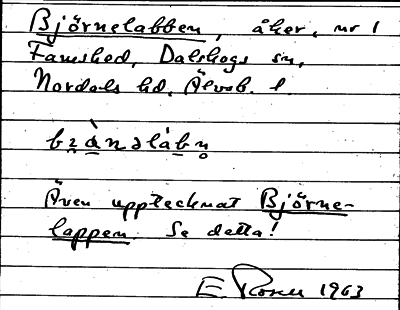 Björnelabben, åker, nr 1
Famshed, Dalskogs sn,
Nordals hd, Älvsb. l.
Även upptecknat Björne-
lappen. Se detta!
E. Rosén 1963